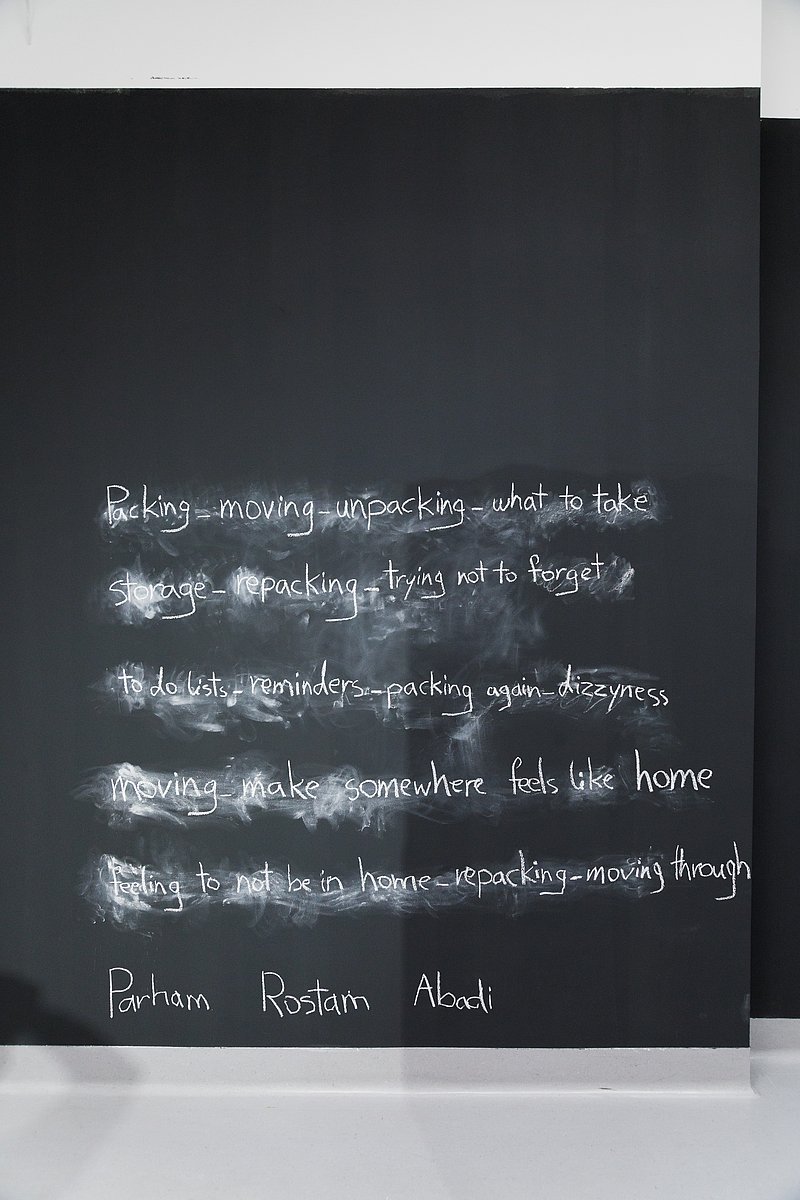 Packing_moving_unpacking_what to take
storage_repacking_trying not to forget
to do lists_reminders_packing again_dizzyness
moving_make somewhere feels like home
feeling to not be in home_repacking_moving through
Parham Rostam Abadi